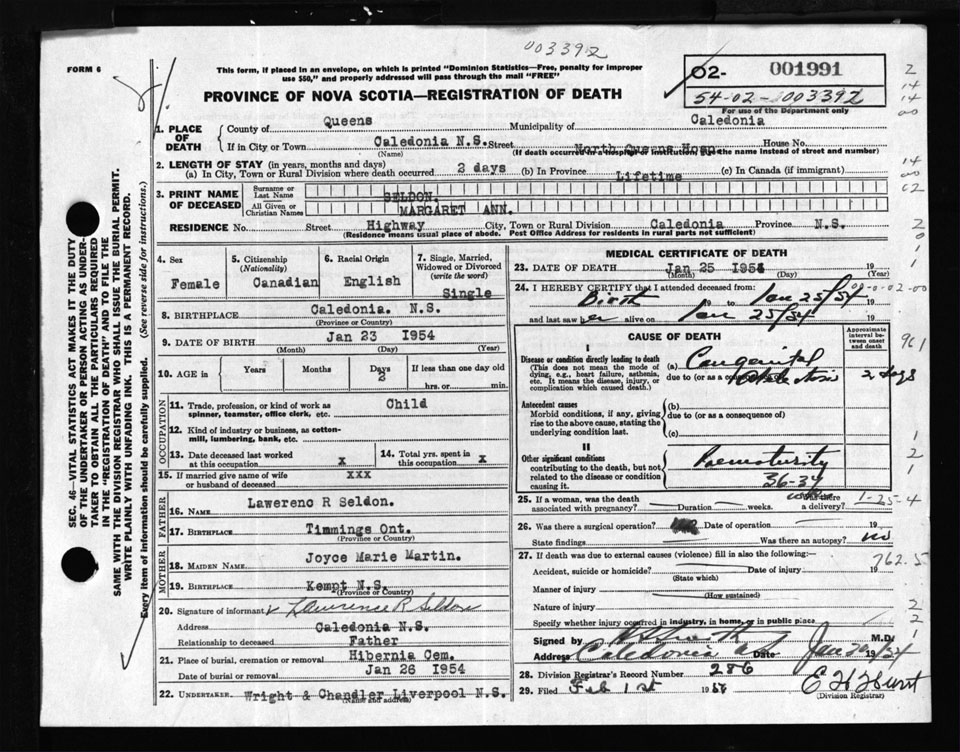 003392
FORM 6
This form, if placed in an envelope, on which is printed "Dominion Statistics—Free, penalty for improper
use $50," and properly addressed will pass through the mail "FREE"
O2- 001991
54-02-003392
For use of the Department only
PROVINCE OF NOVA SCOTIA—REGISTRATION OF DEATH
1. PLACE OF DEATH
County of Queens Municipality of Caledonia
If in City or Town Caledonia N.S. Street North Queens Hosp. House No.
(Name) (If death occurred in a hospital or institution, give the name instead of street and number)
2. LENGTH OF STAY (in years, months and days)
(a) In City, Town or Rural Division where death occurred 2 days (b) In Province Lifetime (c) In Canada (if immigrant)
3. PRINT NAME OF DECEASED
Surname or Last Name SELDON.
All Given or Christian Names MARGARET ANN.
RESIDENCE No. Street Highway City, Town or Rural Division Caledonia Province N.S.
(Residence means usual place of abode. Post Office Address for residents in rural parts not sufficient)
4. Sex Female
5. Citizenship (Nationality) Canadian
6. Racial Origin English
7. Single, Married, Widowed or Divorced (write the word) Single
8. BIRTHPLACE Caledonia. N.S.
(Province or Country)
9. DATE OF BIRTH Jan 23 1954
(Month) (Day) (Year)
10. AGE in Years Months Days 2 If less than one day old hrs. or min.
OCCUPATION
11. Trade, profession, or kind of work as spinner, teamster, office clerk, etc. Child
12. Kind of industry or business, as cotton-mill, lumbering, bank, etc.
13. Date deceased last worked at this occupation x
14. Total yrs. spent in this occupation x
15. If married give name of wife or husband of deceased xxx
FATHER
16. NAME Lawerenc R Seldon.
17. BIRTHPLACE Timmings Ont.
(Province or Country)
MOTHER
18. MAIDEN NAME Joyce Marie Martin.
19. BIRTHPLACE Kempt N.S.
(Province or Country)
20. Signature of informant Lawrence R Seldon
Address Caledonia N.S.
Relationship to deceased Father
21. Place of burial, cremation or removal Hibernia Cem.
Date of burial or removal Jan 26 1954
22. UNDERTAKER Wright & Chandler Liverpool N.S.
(Name and address)
MEDICAL CERTIFICATE OF DEATH
23. DATE OF DEATH Jan 25 1954 19
(Month) (Day) (Year)
24. I HEREBY CERTIFY that I attended deceased from:
Birth 19 to Jan 25/54
and last saw her alive on Jan 25/54
CAUSE OF DEATH
Approximate interval between onset and death
I
Disease or condition directly leading to death
(This does not mean the mode of dying, e.g., heart failure, asthenia, etc. It means the disease, injury, or complication which caused death.)
(a) Congenital
due to (or as a consequence of) Atelectasis 2 days
Antecedent causes
Morbid conditions, if any, giving rise to the above cause, stating the underlying condition last.
(b)
due to (or as a consequence of)
(c)
II
Other significant conditions contributing to the death, but not related to the disease or condition causing it.
Prematurity
36-37
weeks
25. If a woman, was the death associated with pregnancy? Duration weeks. Was there a delivery?
1-25-4
26. Was there a surgical operation? Date of operation 19
State findings Was there an autopsy? no
27. If death was due to external causes (violence) fill in also the following:—
762.5
Accident, suicide or homicide? Date of injury 19
(State which)
Manner of injury
(How sustained)
Nature of injury
Specify whether injury occurred in industry, in home, or in public place
Signed by M.D.
Address Caledonia Date 19
28. Division Registrar's Record Number 286
29. Filed Feb 1st 19 E H Hunt
(Division Registrar)
SEC. 46—VITAL STATISTICS ACT MAKES IT THE DUTY
OF THE UNDERTAKER OR PERSON ACTING AS UNDER-
TAKER TO OBTAIN ALL THE PARTICULARS REQUIRED
IN THE "REGISTRATION OF DEATH" AND TO FILE THE
SAME WITH THE DIVISION REGISTRAR WHO SHALL ISSUE THE BURIAL PERMIT.
WRITE PLAINLY WITH UNFADING INK. THIS IS A PERMANENT RECORD.
Every item of information should be carefully supplied. (See reverse side for instructions.)